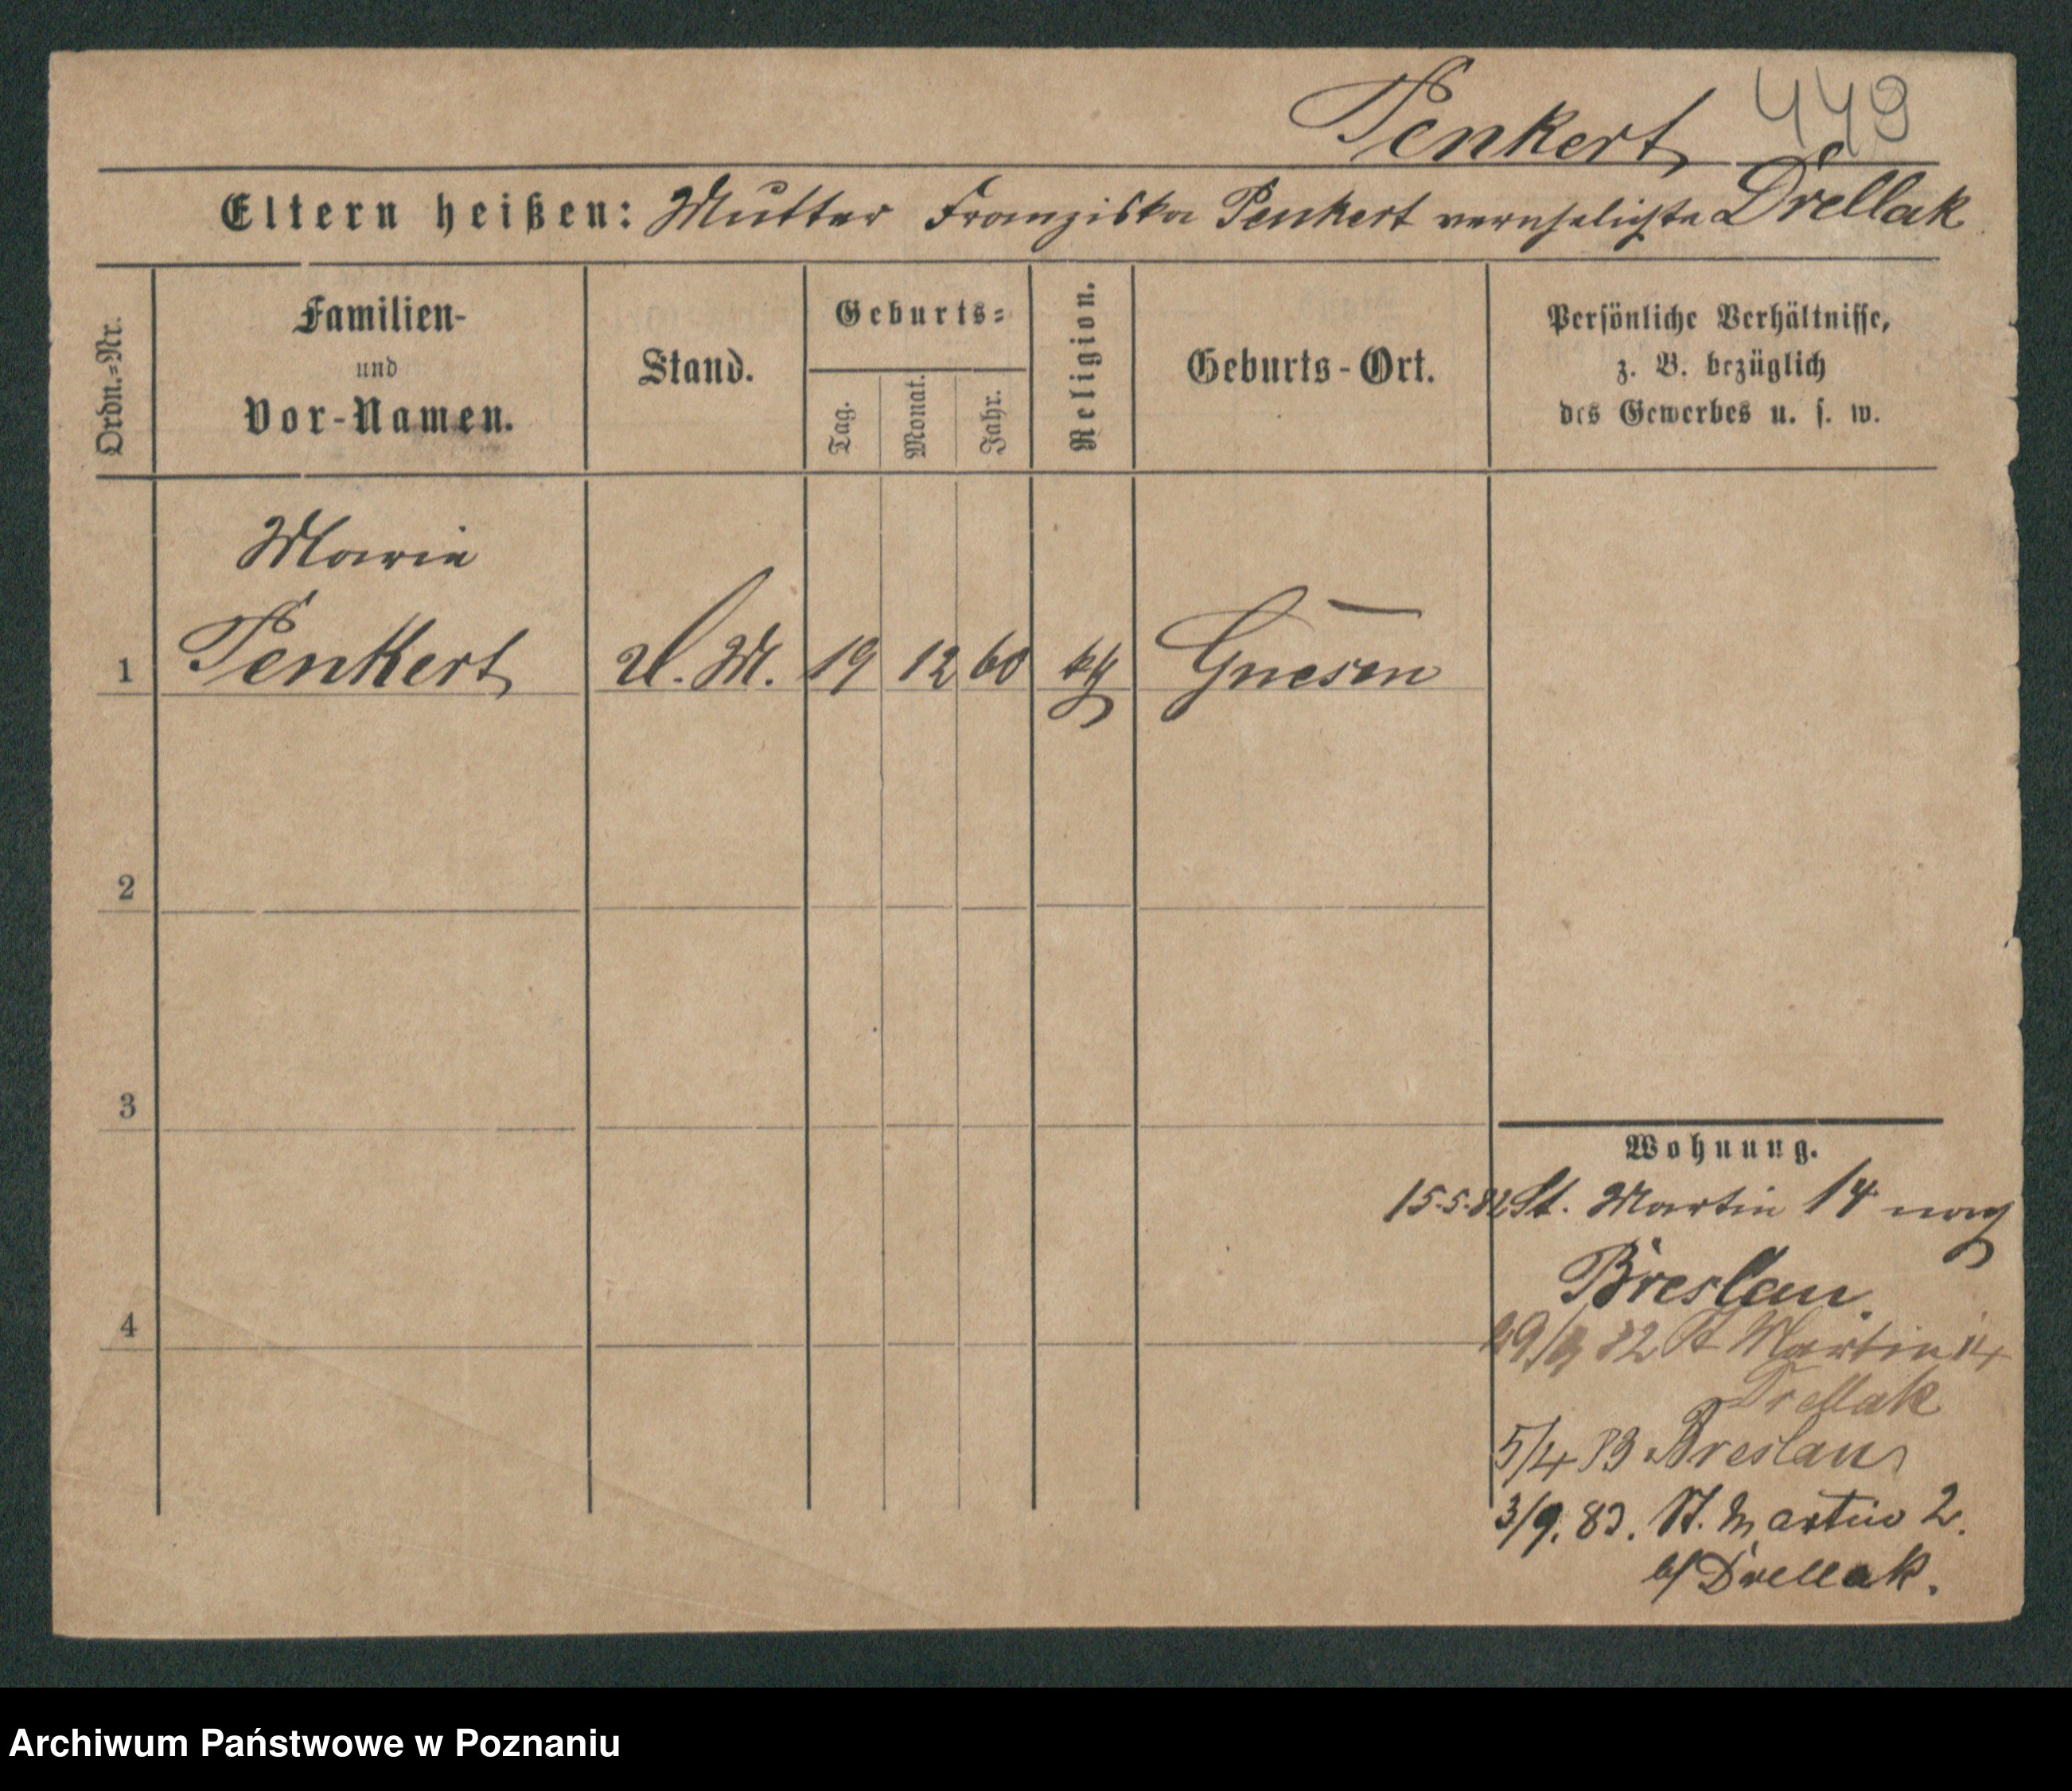 Penkert 449
Eltern heißen: Mutter Franziska Penkert verehelichte Drellak
Ordn.=Nr.
Familien-
und
Vor-Namen.
Stand.
Geburts=
Tag.
Monat.
Jahr.
Religion.
Geburts-Ort.
Persönliche Verhältnisse,
z. B. bezüglich
des Gewerbes u. s. w.
Marie
1 Penkert U. M. 19 12 60 kth Gnesen
2
3
4
Wohnung.
15.5.82 St. Martin 14 nach
Breslau.
82 St Martin 14
Drellak
5/4 83 Breslau
3/9. 83. St. Martin 2.
b/ Drellak.
Archiwum Państwowe w Poznaniu